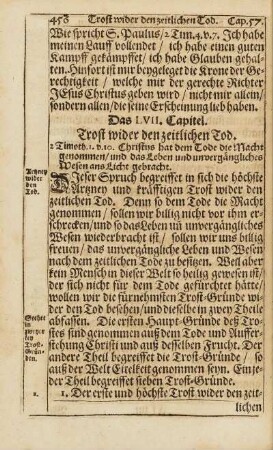 458 Trost wider den zeitlichen Tod. Cap. 57.
Wie spricht S. Paulus / 2 Tim. 4. v. 7. Ich habe
meinen Lauff vollendet / ich habe einen guten
Kampff gekämpffet / ich habe Glauben gehal-
ten. Hinfort ist mir beygeleget die Krone der Ge-
rechtigkeit / welche mir der gerechte Richter
JEsus Christus geben wird / nicht mir allein /
sondern allen / die seine Erscheinung lieb haben.
Das LVII. Capitel.
Trost wider den zeitlichen Tod.
2 Timoth. 1. v. 10. Christus hat dem Tode die Macht
genommen / und das Leben und unvergängliches
Wesen ans Licht gebracht.
Artzney
wider
den
Tod.
DIeser Spruch begreiffet in sich die höchste
Artzney und kräfftigen Trost wider den
zeitlichen Tod. Denn so dem Tode die Macht
genommen / sollen wir billig nicht vor ihm er-
schrecken / und so das Leben uñ unvergängliches
Wesen wiederbracht ist / sollen wir uns billig
freuen / das unvergängliche Leben und Wesen
nach dem zeitlichen Tode zu besitzen. Weil aber
kein Mensch in dieser Welt so heilig gewesen ist /
der sich nicht für dem Tode gefürchtet hätte /
wollen wir die fürnehmsten Trost-Gründe wi-
der den Tod besehen / und dieselbe in zwey Theile
abfassen. Die ersten Haupt-Gründe des Tro-
stes sind genommen auß dem Tode und Auffer-
stehung Christi und auß desselben Frucht. Der
andere Theil begreiffet die Trost-Gründe / so
auß der Welt Eitelkeit genommen seyn. Ein je-
der Theil begreiffet sieben Trost-Gründe.
in
Trost-
Grün-
den.
1.
1. Der erste und höchste Trost wider den zeit-
lichen